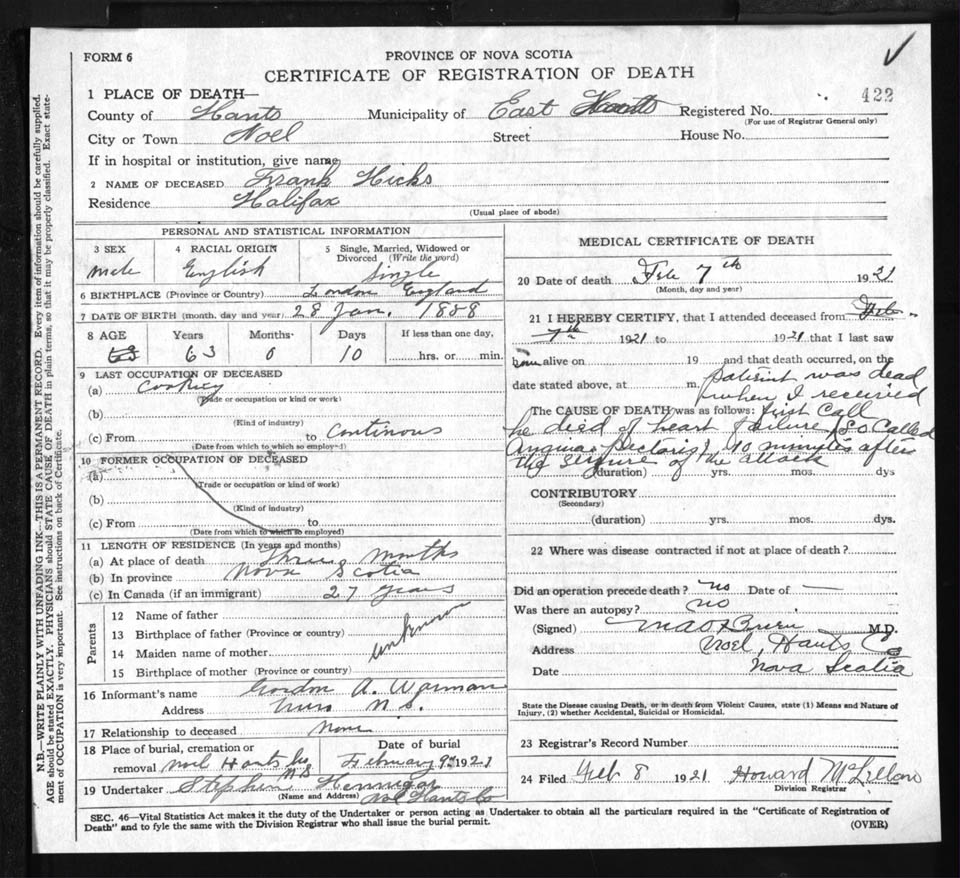 FORM 6
PROVINCE OF NOVA SCOTIA
CERTIFICATE OF REGISTRATION OF DEATH
422
1 PLACE OF DEATH—
County of Hants Municipality of East Hants Registered No.
(For use of Registrar General only)
City or Town Noel Street House No.
If in hospital or institution, give name
2 NAME OF DECEASED Frank Hicks
Residence Halifax
(Usual place of abode)
PERSONAL AND STATISTICAL INFORMATION
3 SEX 4 RACIAL ORIGIN 5 Single, Married, Widowed or Divorced (Write the word)
male English Single
6 BIRTHPLACE (Province or Country) London England
7 DATE OF BIRTH (month, day and year) 28 Jan. 1858
8 AGE Years Months Days If less than one day,
63 63 0 10 hrs. or min.
9 LAST OCCUPATION OF DECEASED
(a) Cooking
(Trade or occupation or kind or work)
(b)
(Kind of industry)
(c) From to continous
(Date from which to which employed)
10 FORMER OCCUPATION OF DECEASED
(a)
(Trade or occupation or kind of work)
(b)
(Kind of industry)
(c) From to
(Date from which to which so employed)
11 LENGTH OF RESIDENCE (In years and months)
(a) At place of death months
(b) In province Nova Scotia
(c) In Canada (if an immigrant) 27 years
Parents
12 Name of father
13 Birthplace of father (Province or country) unknown
14 Maiden name of mother
15 Birthplace of mother (Province or country)
16 Informant's name Gordon A. Warman
Address N.S.
17 Relationship to deceased None
18 Place of burial, cremation or removal Noel Hants Co N.S
Date of burial February 9th 1921
19 Undertaker Stephen Hennigar
(Name and Address) Noel Hants Co
MEDICAL CERTIFICATE OF DEATH
20 Date of death Feb 7th 1921
(Month, day and year)
21 I HEREBY CERTIFY, that I attended deceased from Feb
7th 1921 to 1921 that I last saw
alive on 19 and that death occurred, on the
date stated above, at m. patient was dead
when I received
The CAUSE OF DEATH was as follows: first call
he died of heart failure (so called
Anginia Pectoris) 10 minutes after
the seizure of the attack
(duration) yrs. mos. dys
CONTRIBUTORY
(Secondary)
(duration) yrs. mos. dys.
22 Where was disease contracted if not at place of death?
Did an operation precede death? no Date of —
Was there an autopsy? no
(Signed) M.D.
Address Noel, Hants Co
Date Nova Scotia
State the Disease causing Death, or in death from Violent Causes, state (1) Means and Nature of
Injury, (2) whether Accidental, Suicidal or Homicidal.
23 Registrar's Record Number
24 Filed Feb 8 1921 Howard
Division Registrar
SEC. 46—Vital Statistics Act makes it the duty of the Undertaker or person acting as Undertaker to obtain all the particulars required in the "Certificate of Registration of
Death" and to fyle the same with the Division Registrar who shall issue the burial permit.
(OVER)
N.B.—WRITE PLAINLY WITH UNFADING INK—THIS IS A PERMANENT RECORD. Every item of information should be carefully supplied.
AGE should be stated EXACTLY. PHYSICIANS should STATE CAUSE OF DEATH in plain terms, so that it may be properly classified. Exact state-
ment of OCCUPATION is very important. See instructions on back of Certificate.